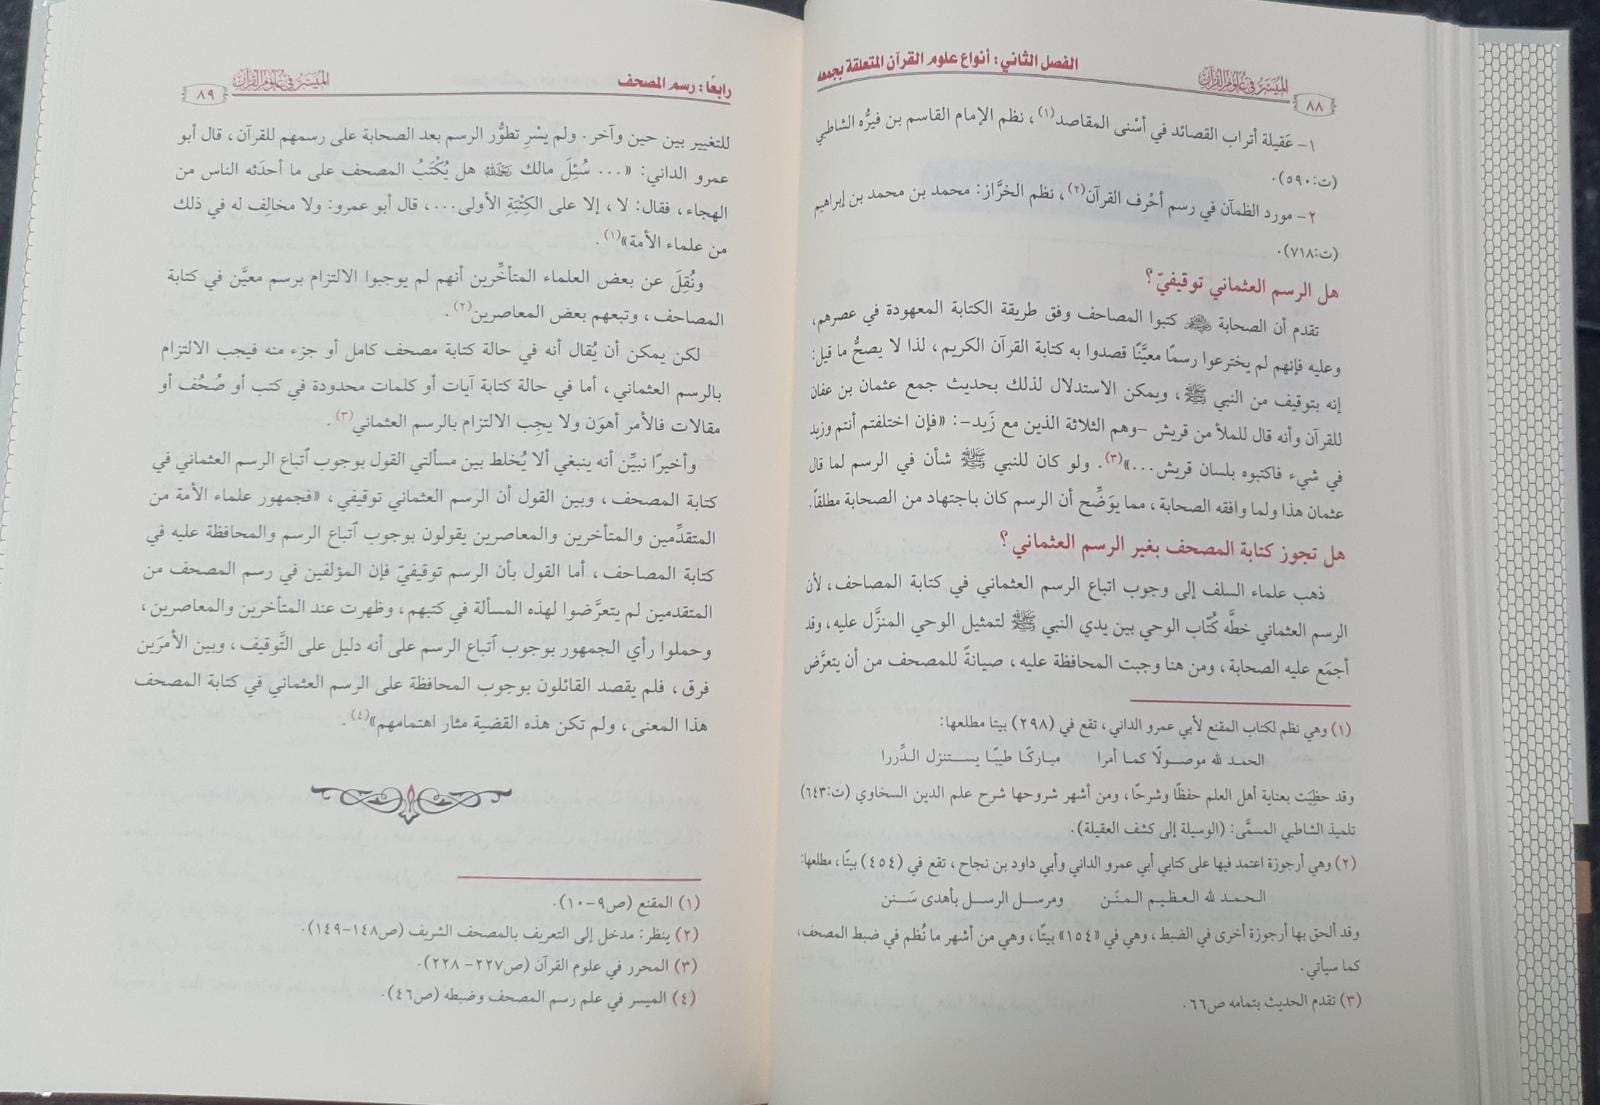 الميسر في علوم القرآن
٨٨
الفصل الثاني: أنواع علوم القرآن المتعلقة بجمعه
١- عَقيلة أتراب القصائد في أسْنى المقاصد(١)، نظم الإمام القاسم بن فيرُّه الشاطبي
(ت:٥٩٠).
٢- مورد الظمآن في رسم أحْرف القرآن(٢)، نظم الخرَّاز: محمد بن محمد بن إبراهيم
(ت:٧١٨).
هل الرسم العثماني توقيفيّ؟
تقدم أن الصحابة ﵃ كتبوا المصاحف وفق طريقة الكتابة المعهودة في عصرهم،
وعليه فإنهم لم يخترعوا رسمًا معيَّنًا قصدوا به كتابة القرآن الكريم، لذا لا يصحُّ ما قيل:
إنه بتوقيف من النبي ﷺ، ويمكن الاستدلال لذلك بحديث جمع عثمان بن عفان
للقرآن وأنه قال للملأ من قريش -وهم الثلاثة الذين مع زَيد-: «فإن اختلفتم أنتم وزيد
في شيء فاكتبوه بلسان قريش...»(٣). ولو كان للنبي ﷺ شأن في الرسم لما قال
عثمان هذا ولما وافقه الصحابة، مما يوَضِّح أن الرسم كان باجتهاد من الصحابة مطلقاً.
هل تجوز كتابة المصحف بغير الرسم العثماني؟
ذهب علماء السلف إلى وجوب اتباع الرسم العثماني في كتابة المصاحف، لأن
الرسم العثماني خطَّه كُتّاب الوحي بين يدي النبي ﷺ لتمثيل الوحي المنزَّل عليه، وقد
أجمَع عليه الصحابة، ومن هنا وجبت المحافظة عليه، صيانةً للمصحف من أن يتعرَّض
(١) وهي نظم لكتاب المقنع لأبي عمرو الداني، تقع في (٢٩٨) بيتا مطلعها:
الحمد لله موصولًا كما أمرا مباركًا طيبًا يستنزل الدِّررا
وقد حظِيَت بعناية أهل العلم حفظًا وشرحًا، ومن أشهر شروحها شرح علم الدين السخاوي (ت:٦٤٣)
تلميذ الشاطبي المسمَّى: (الوسيلة إلى كشف العقيلة).
(٢) وهي أرجوزة اعتمد فيها على كتابي أبي عمرو الداني وأبي داود بن نجاح، تقع في (٤٥٤) بيتًا، مطلعها:
الحمد لله العظيم المنَن ومرسل الرسل بأهدى سَنن
وقد ألحق بها أرجوزة أخرى في الضبط، وهي في «١٥٤» بيتًا، وهي من أشهر ما نُظم في ضبط المصحف،
كما سيأتي.
(٣) تقدم الحديث بتمامه ص٦٦.
رابعًا: رسم المصحف
الميسر في علوم القرآن
٨٩
للتغيير بين حين وآخر. ولم يسْرِ تطوُّر الرسم بعد الصحابة على رسمهم للقرآن، قال أبو
عمرو الداني: «... سُئِلَ مالك ﵀ هل يُكْتَبُ المصحف على ما أحدَثه الناس من
الهجاء، فقال: لا، إلا على الكِتْبَةِ الأولى...، قال أبو عمرو: ولا مخالِف له في ذلك
من علماء الأمة»(١).
ونُقِلَ عن بعض العلماء المتأخِّرين أنهم لم يوجبوا الالتزام برسم معيَّن في كتابة
المصاحف، وتبعهم بعض المعاصرين(٢).
لكن يمكن أن يُقال أنه في حالة كتابة مصحف كامل أو جزء منه فيجب الالتزام
بالرسم العثماني، أما في حالة كتابة آيات أو كلمات محدودة في كتب أو صُحُف أو
مقالات فالأمر أهوَن ولا يجِب الالتزام بالرسم العثماني(٣).
وأخيرًا نبيِّن أنه ينبغي ألا يُخلط بين مسألتي القول بوجوب ٱتباع الرسم العثماني في
كتابة المصحف، وبين القول أن الرسم العثماني توقيفي، «فجمهور علماء الأمة من
المتقدِّمين والمتأخرين والمعاصرين يقولون بوجوب ٱتباع الرسم والمحافظة عليه في
كتابة المصاحف، أما القول بأن الرسم توقيفيّ فإن المؤلفين في رسم المصحف من
المتقدمين لم يتعرَّضوا لهذه المسألة في كتبهم، وظهرت عند المتأخرين والمعاصرين،
وحملوا رأي الجمهور بوجوب ٱتباع الرسم على أنه دليل على التَّوقيف، وبين الأمرَين
فرق، فلم يقصد القائلون بوجوب المحافظة على الرسم العثماني في كتابة المصحف
هذا المعنى، ولم تكن هذه القضية مثار اهتمامهم»(٤).
(١) المقنع (ص٩-١٠).
(٢) ينظر: مدخل إلى التعريف بالمصحف الشريف (ص١٤٨-١٤٩).
(٣) المحرر في علوم القرآن (ص٢٢٧- ٢٢٨).
(٤) الميسر في علم رسم المصحف وضبطه (ص٤٦).